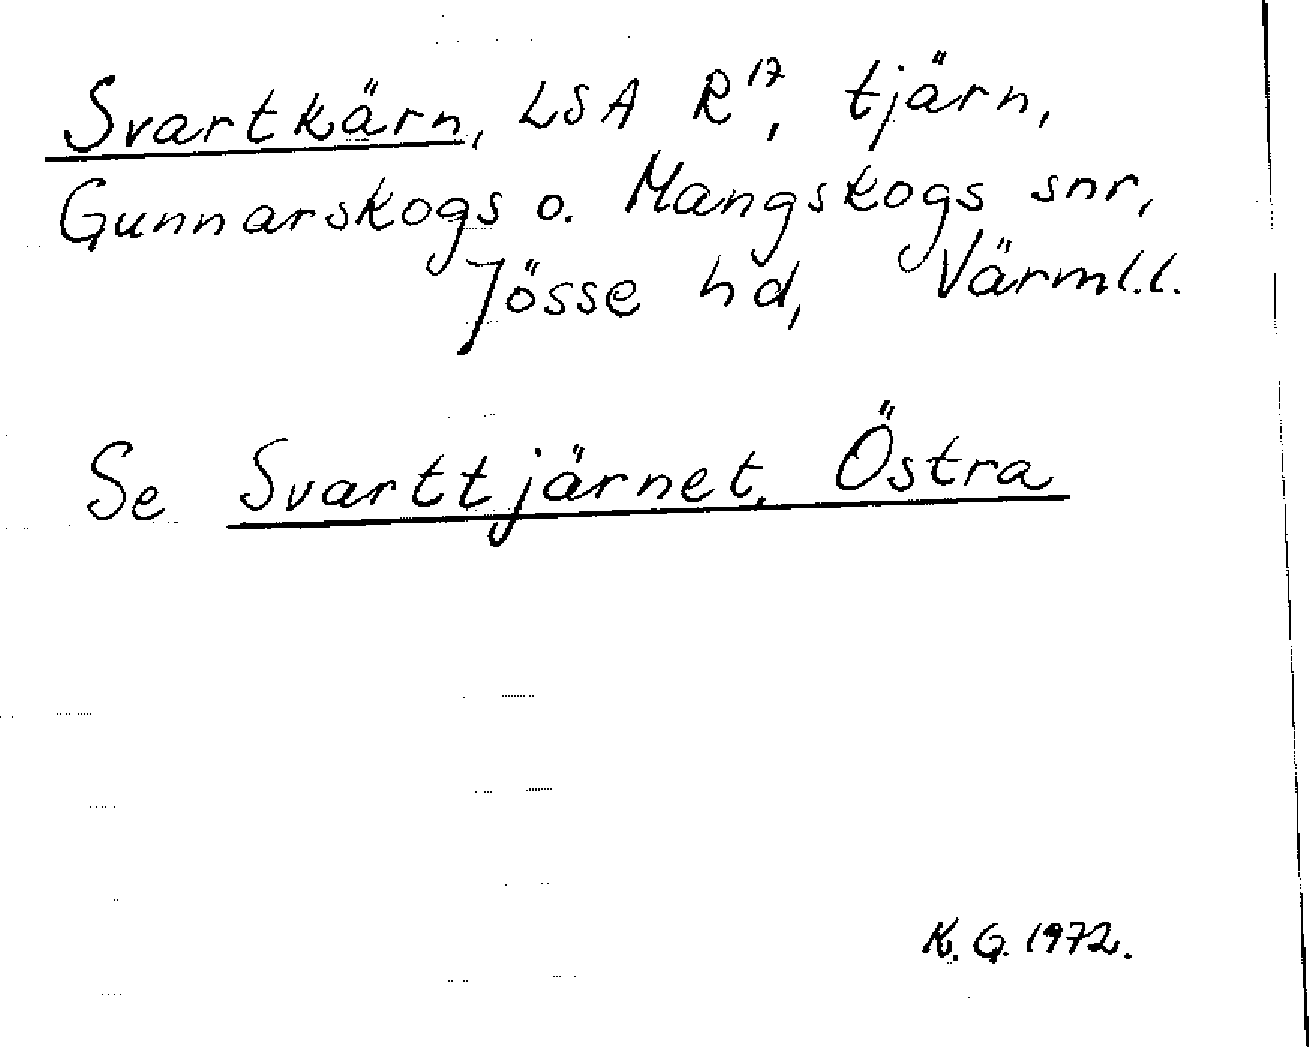 Svartkärn, LSA R¹⁷, tjärn,
Gunnarskogs o. Mangskogs snr,
Jösse hd, Värml.l.
Se Svarttjärnet, Östra
K.G. 1972.